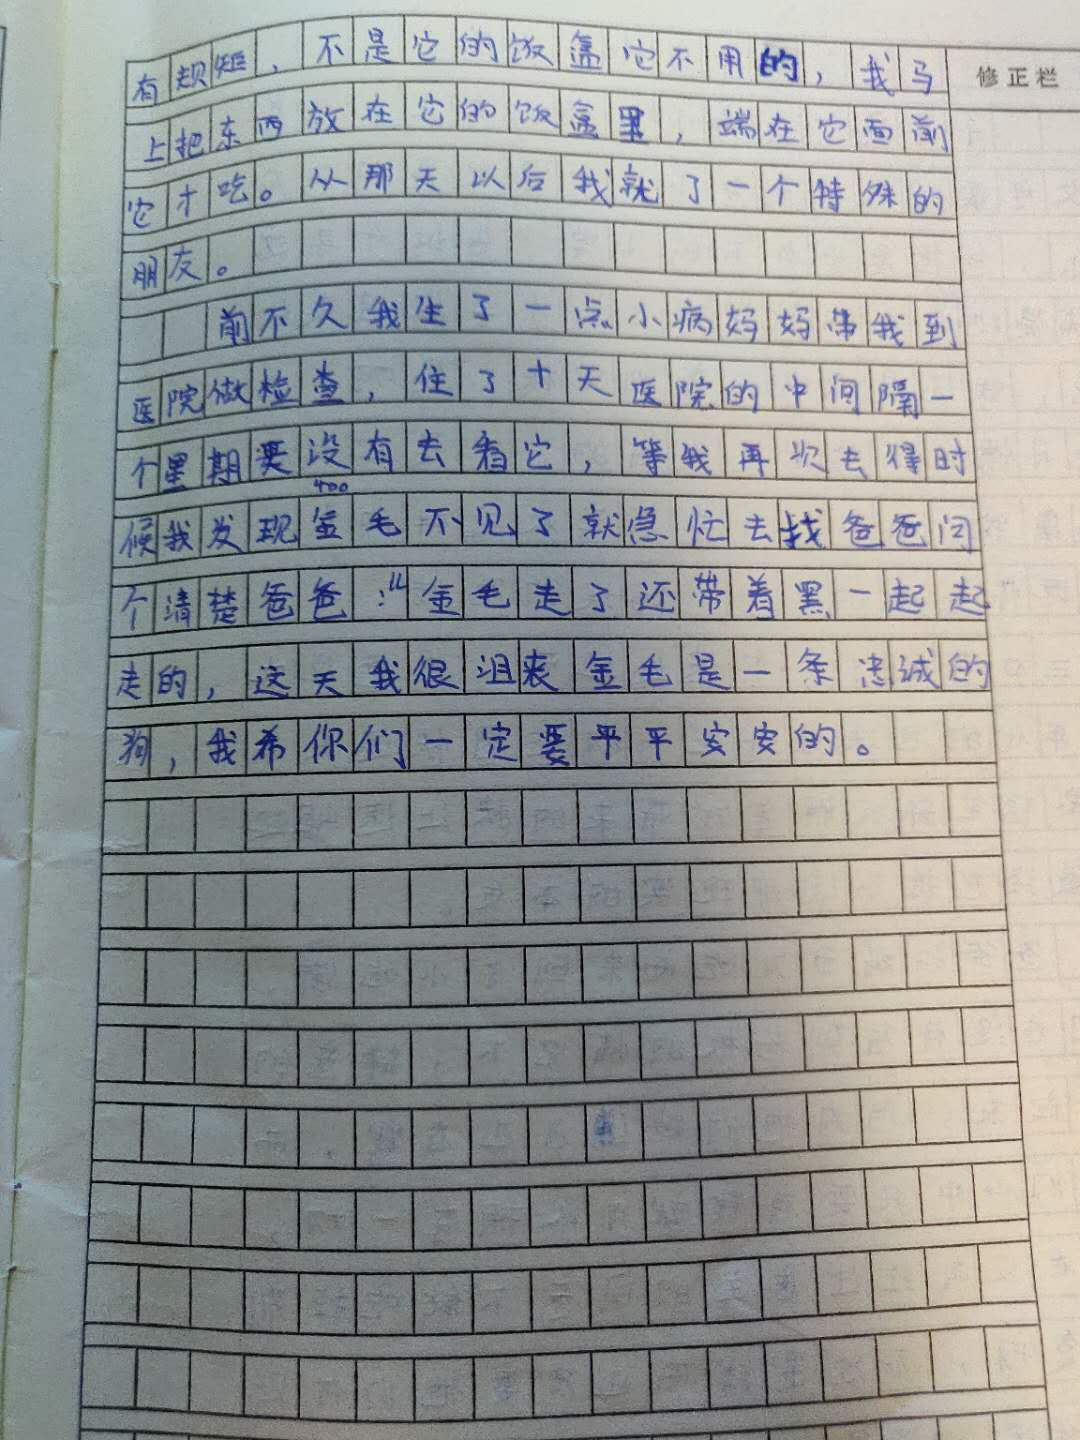 有规矩，不是它的饭盒它不用的，我马
修正栏
上把东西放在它的饭盒里，端在它面前
它才吃。从那天以后我就了一个特殊的
朋友。
前不久我生了一点小病妈妈带我到
医院做检查，住了十天医院的中间隔一
个星期要没有去看它，等我再次去得时
400
候我发现金毛不见了就急忙去找爸爸问
个清楚爸爸：“金毛走了还带着黑一起起
走的，这天我很沮丧金毛是一条忠诚的
狗，我希你们一定要平平安安的。